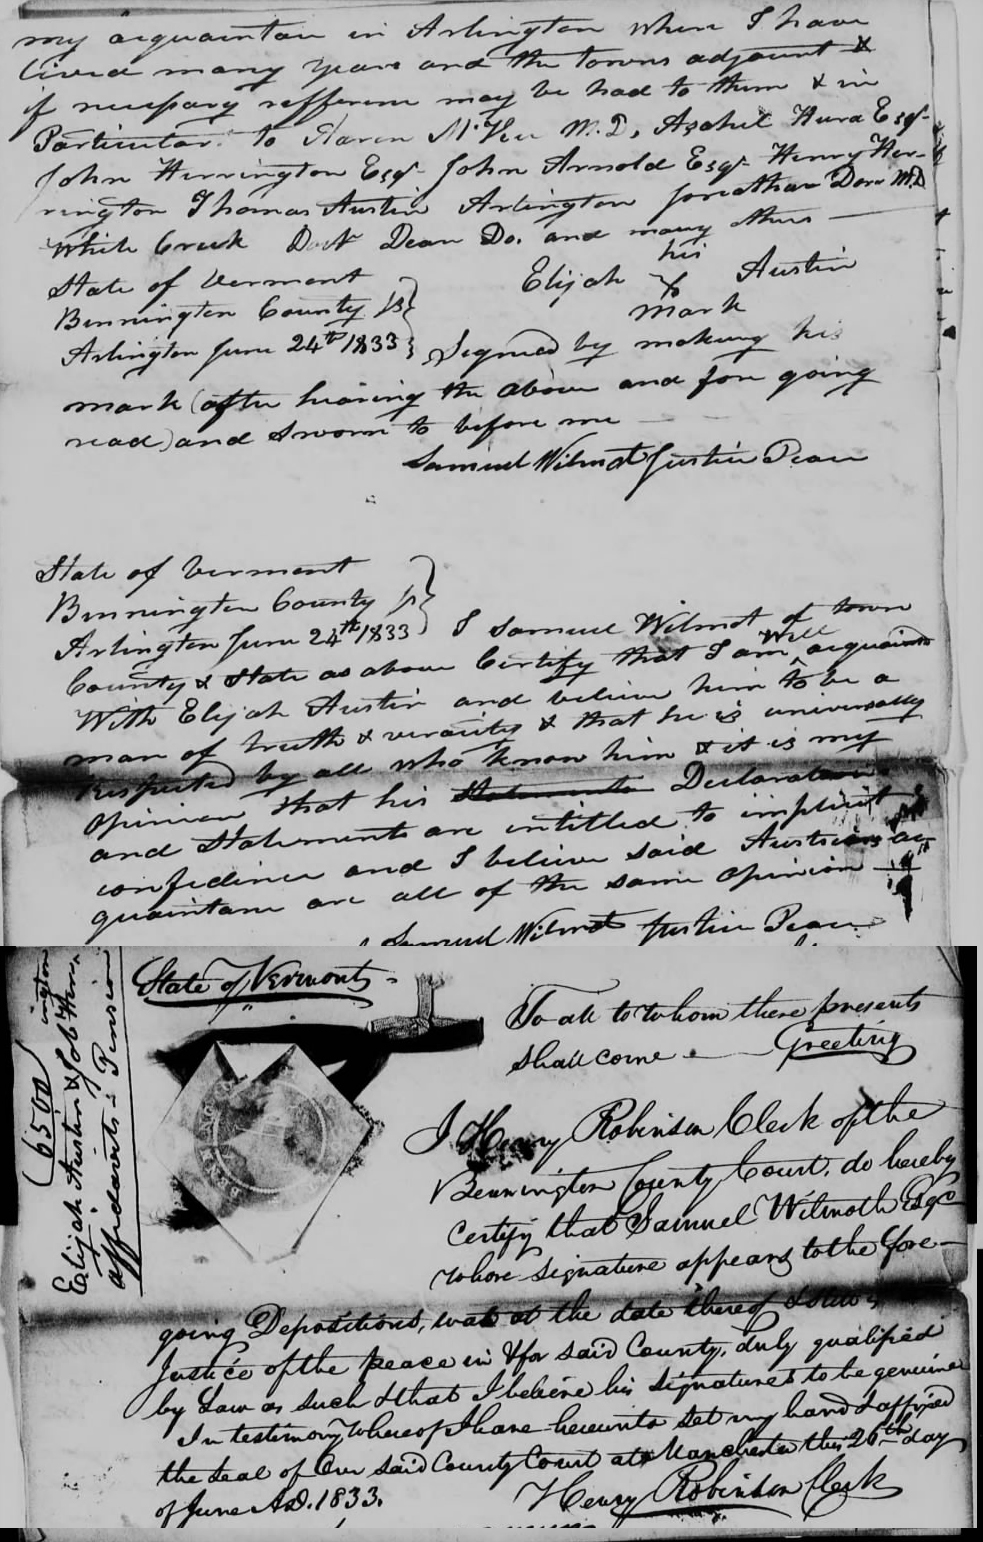 my acquaintan in Arlington when I have
lived many years and the towns adjacent &
if necessary refference may be had to them & in
Particular to Aaron M.D, Asahel Hurd Esqr
John Herrington Esqr John Arnold Esqr Henry Her-
rington Thomas Austin Arlington Jonathan Dorr MD
White Creek Doct Dean Do. and many others
Elijah his X mark Austin
State of Vermont
Bennington County ss
Arlington June 24th 1833
Signed by making his
mark (after hearing the above and fore going
read) and sworn to before me
Samuel Wilmot Justice Peace
State of Vermont
Bennington County ss
Arlington June 24th 1833 I Samuel Wilmot of town
County & State as above Certify that I am Well acquainted
With Elijah Austin and believe him to be a
man of truth & veracity & that he is universally
Respected by all who know him & it is my
opinion that his Statements Declaration
and Statements are intitled to implicit
confidence and I believe said Austins ac
quaintanc are all of the same opinion
Samuel Wilmot Justice Peace
6500
ington
Elijah Austin & Job Herr,
affidavits - Pension
State of Vermont
To all to whom these presents
shall come Greeting
I Henry Robinson Clerk of the
Bennington County Court, do hereby
certify that Samuel Wilmoth Esqr
whose signature appears to the fore-
going Depositions, was at the date thereof & still is
Justice of the peace in & for said County, duly qualified
by Law as such & that I believe his signatures to be genuine
In testimony whereof I have hereunto set my hand & affixed
the seal of Our said County Court at Manchester this 26th day
of June A.D. 1833.
Henry Robinson Clerk